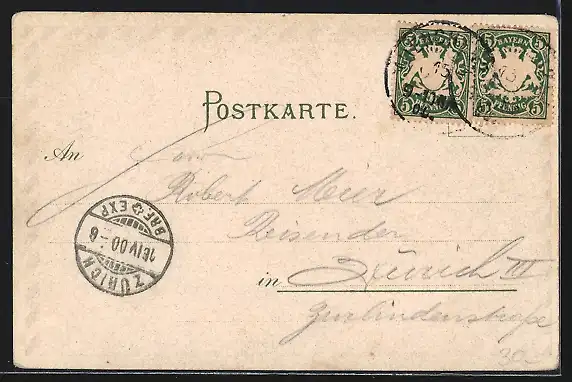 BAYERN BAYERN
5 5 5 5
PFENNIG PFENNIG
POSTKARTE.
An Herrn
Robert Meier
Reisender
in Zürich III
Zurlindenstraße
30
ZÜRICH
16 IV 00 - 6
BRF EXP